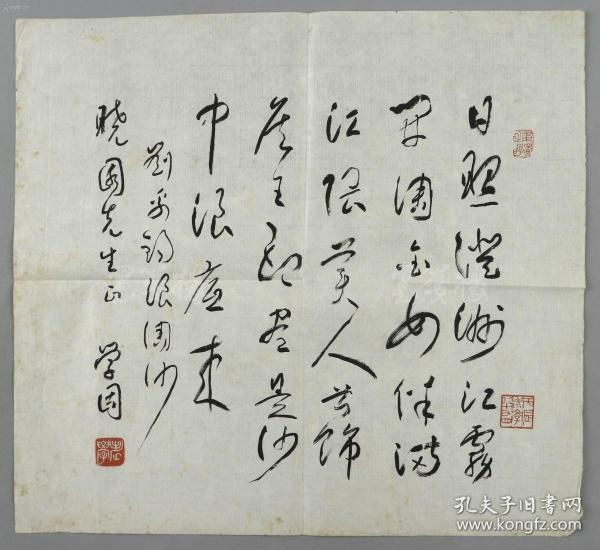 日照澄洲江霧
開淘金女伴滿
江隈美人首飾
侯王印尽是沙
中浪底来
劉禹錫浪淘沙
晓園先生正 学
孔夫子旧书网
www.kongfz.com